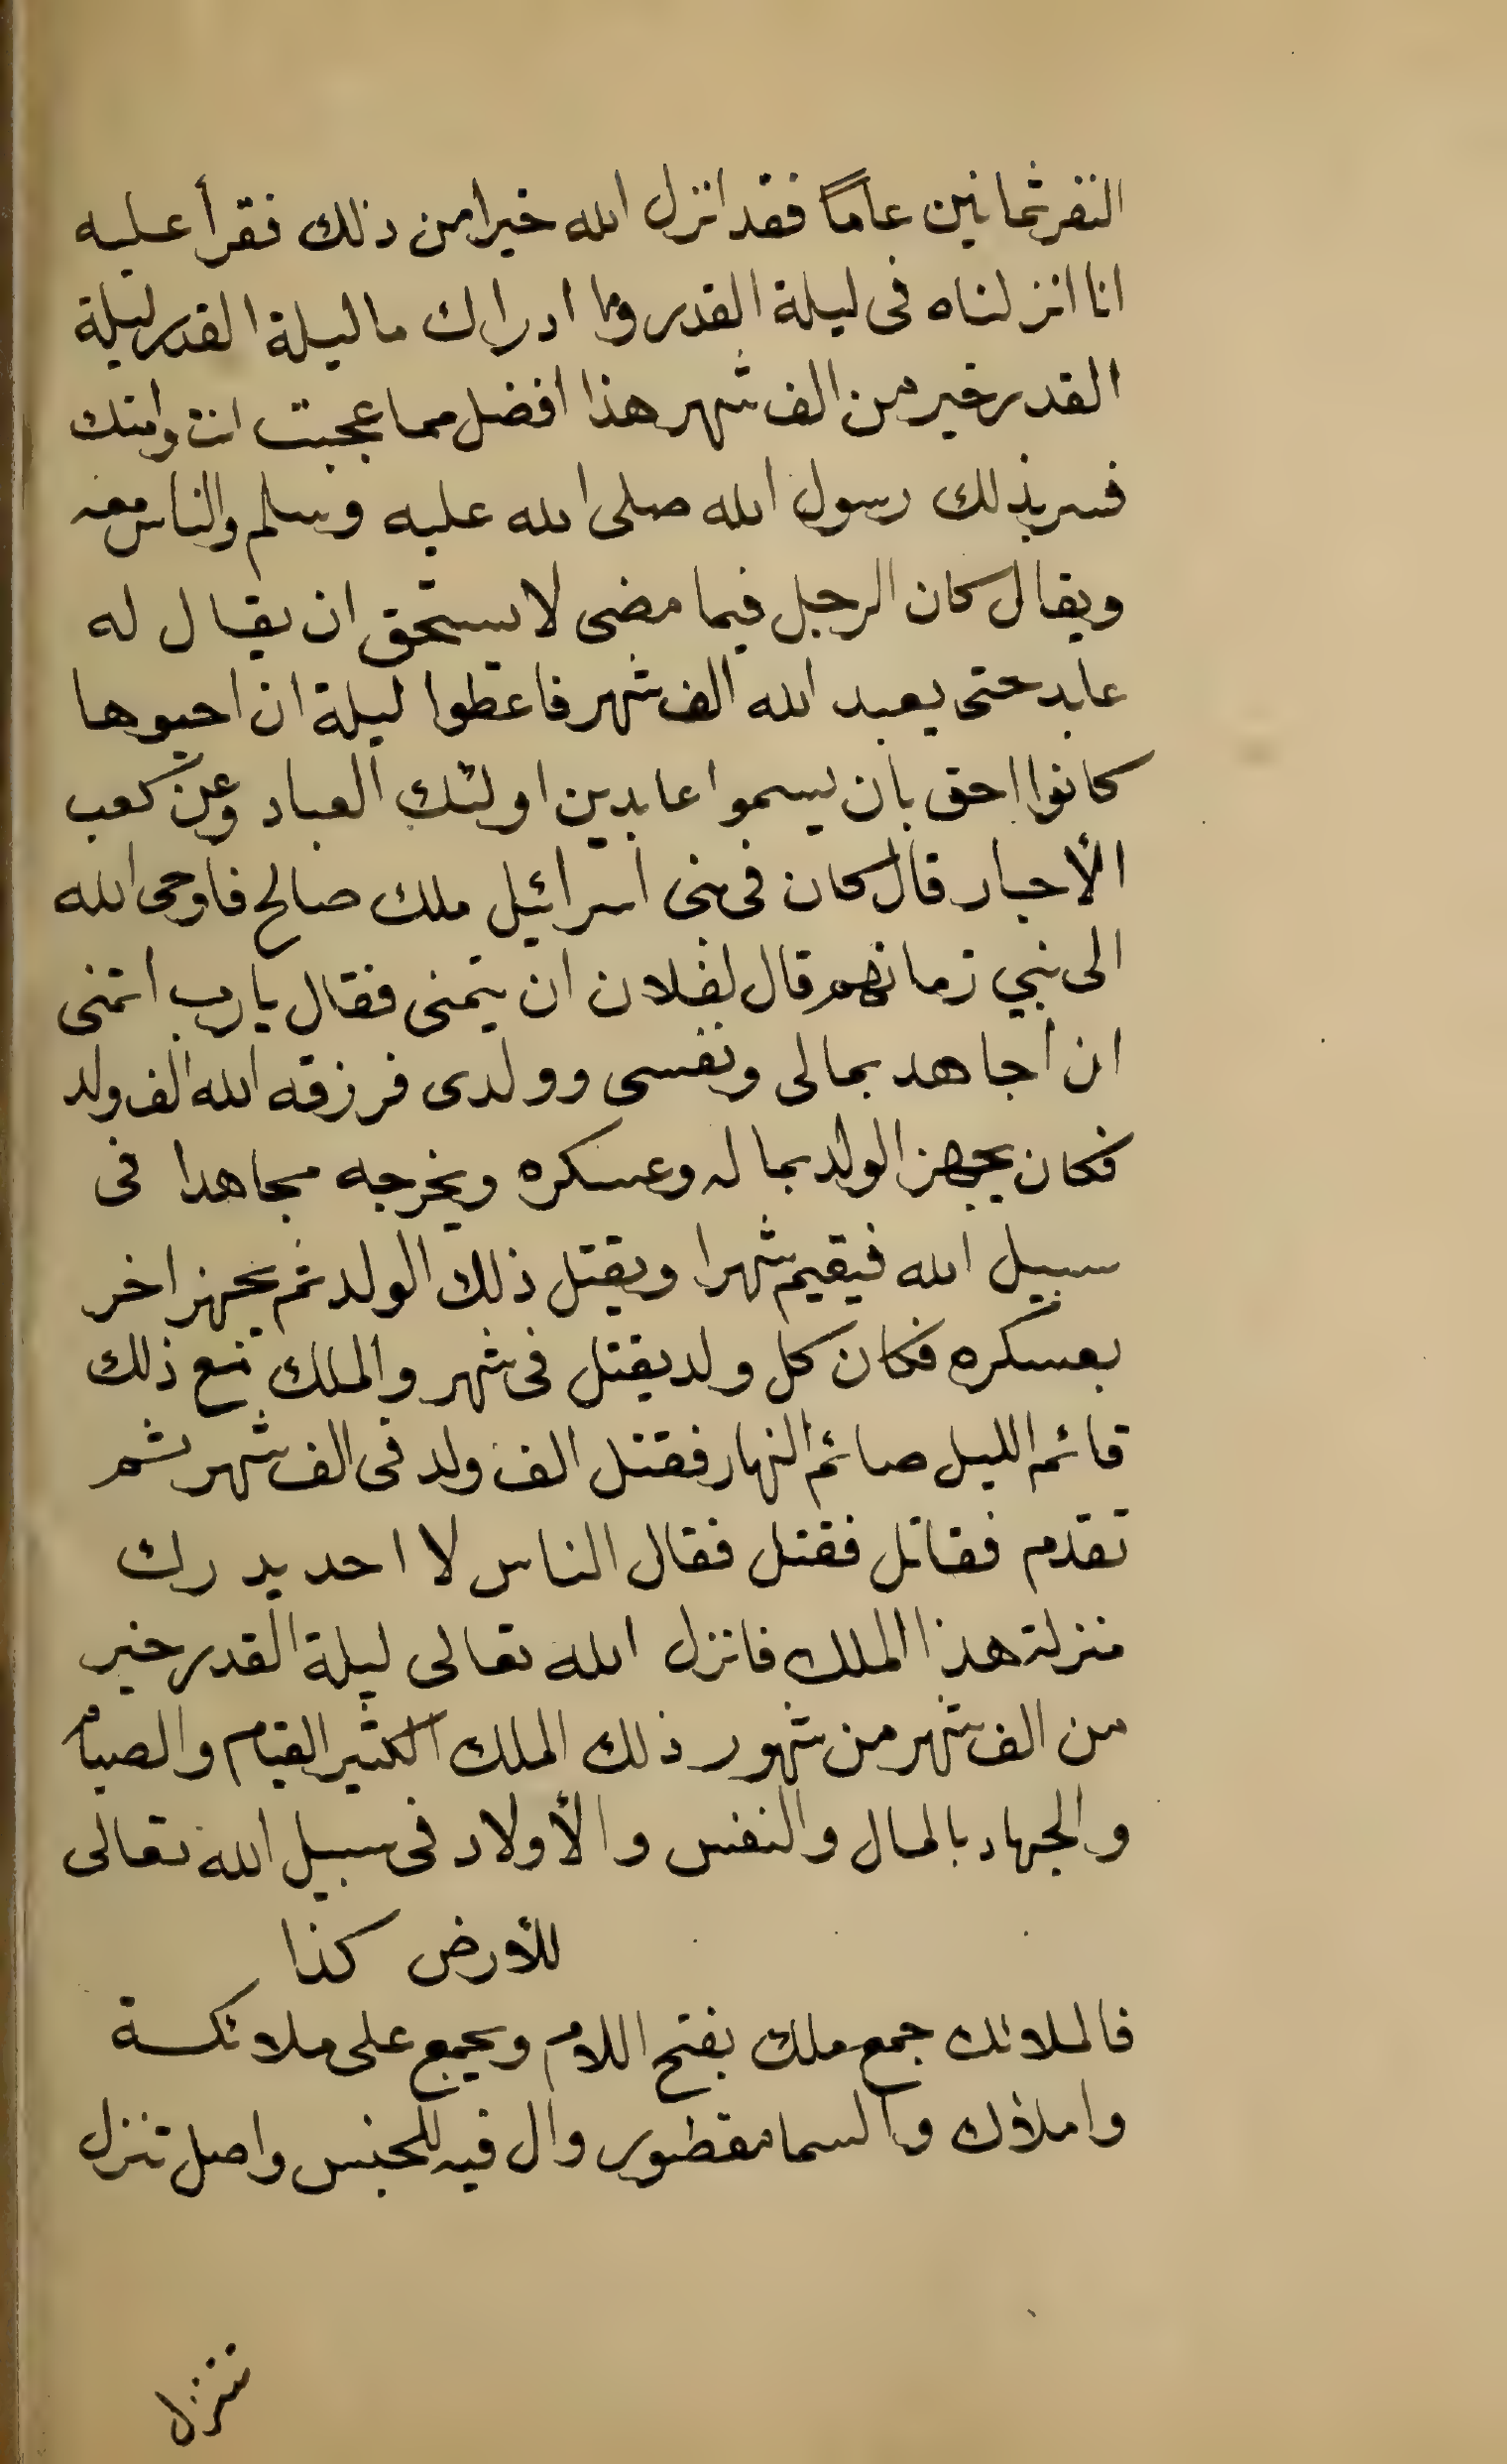 النفر ثمانين عاماً فقد انزل الله خيرا من ذلك فقرأ عليه
انا انزلناه فى ليلة القدر وما ادراك ما ليلة القدر ليلة
القدر خير من الف شهر هذا افضل مما عجبت انت وامتك
فسر بذلك رسول الله صلى الله عليه وسلم والناس معه
ويقال كان الرجل فيما مضى لا يستحق ان يقال له
عابد حتى يعبد الله الف شهر فاعطوا ليلة ان احيوها
كانوا احق بأن يسموا عابدين اولئك العباد وعن كعب
الأحبار قال كان فى بنى اسرائيل ملك صالح فاوحى الله
الى نبي زمانهم قال لفلان ان يتمنى فقال يا رب اتمنى
ان أجاهد بمالى ونفسى وولدى فرزقه الله الف ولد
فكان يجهز الولد بماله وعسكره ويخرجه مجاهدا فى
سبيل الله فيقيم شهرا ويقتل ذلك الولد ثم يجهز اخر
بعسكره فكان كل ولد يقتل فى شهر والملك مع ذلك
قائم الليل صائم النهار فقتل الف ولد فى الف شهر ثم
تقدم فقاتل فقتل فقال الناس لا احد يدرك
منزلة هذا الملك فانزل الله تعالى ليلة القدر خير
من الف شهر من شهور ذلك الملك الكثير القيام والصيام
والجهاد بالمال والنفس والأولاد فى سبيل الله تعالى
للأورض كذا
فالملائك جمع ملك بفتح اللام ويجمع على ملائكة
واملاك والسما وال فيه للجنس واصل تنزل
تتنزل